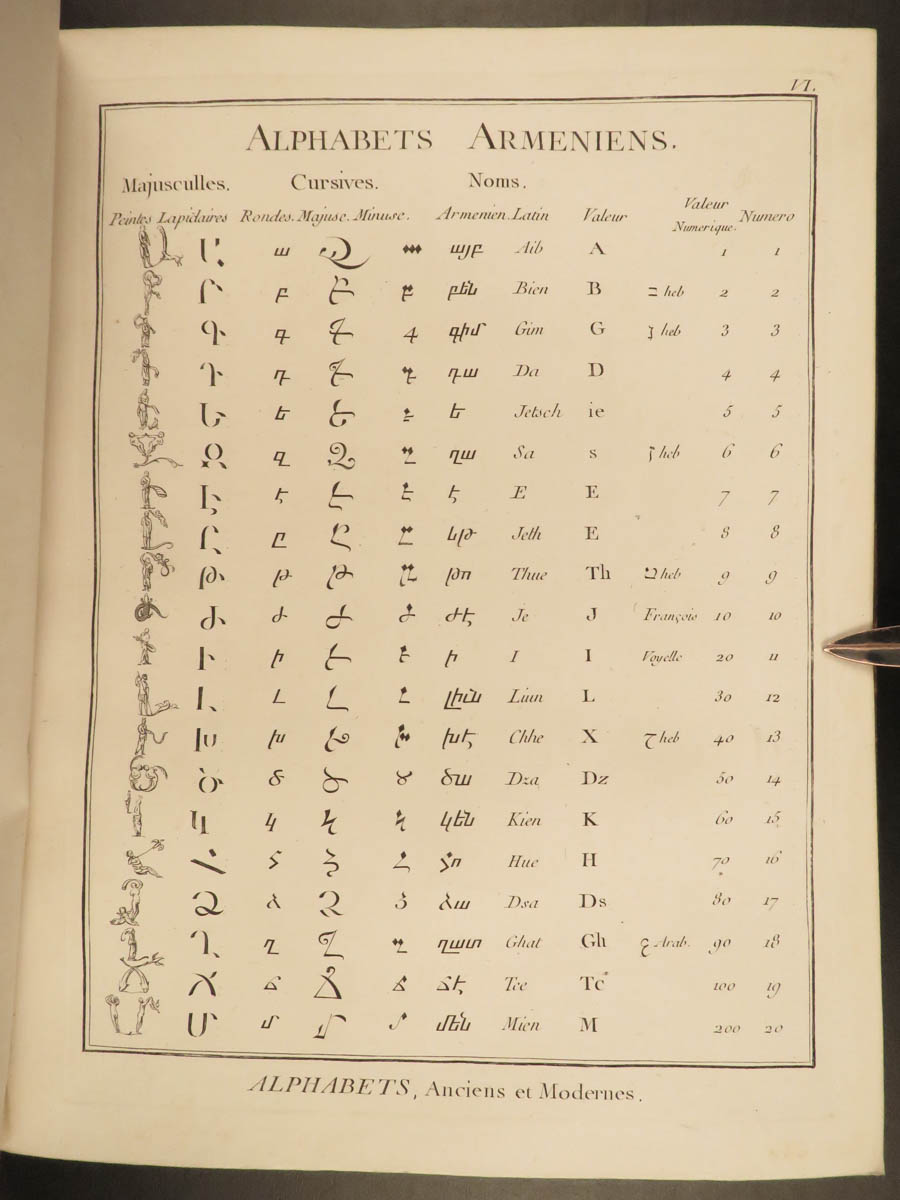 VI.
ALPHABETS ARMENIENS.
Majusculles. Cursives. Noms.
Peintes Lapidaires Rondes. Majusc. Minusc. Armenien. Latin Valeur Valeur Numerique. Numero
Ա ա Ա ա այբ Aib A 1 1
Բ բ Բ բ բեն Bien B ב heb 2 2
Գ գ Գ գ գիմ Gim G ג heb 3 3
Դ դ Դ դ դա Da D 4 4
Ե ե Ե ե ե Jetsch ie 5 5
Զ զ Զ զ զա Sa s ז heb 6 6
Է է Է է է E E 7 7
Ը ը Ը ը Jeth E 8 8
Թ թ Թ թ թո Thue Th ט heb 9 9
Ժ ժ Ժ ժ ժէ Je J François 10 10
Ի ի Ի ի ի I I Voyelle 20 11
Լ լ Լ լ լիւն Liun L 30 12
Խ խ Խ խ խէ Chhe X heb 40 13
Ծ ծ Ծ ծ ծա Dza Dz 50 14
Կ կ Կ կ կեն Kien K 60 15
Հ հ Հ հ հո Hue H 70 16
Ձ ձ Ձ ձ ձա Dsa Ds 80 17
Ղ ղ Ղ ղ ղատ Ghat Gh Arab. 90 18
Ճ ճ Ճ ճ ճէ Tce Tc 100 19
Մ մ Մ մ մեն Mien M 200 20
ALPHABETS, Anciens et Modernes.